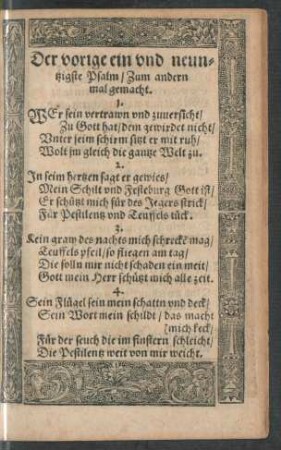 Der vorige ein vnd neun-
tzigste Psalm / Zum andern
mal gemacht.
1.
WEr sein vertrawn vnd zuuersicht /
Zu Gott hat / dem zewirdet nicht /
Vnter seim schirm sitzt er mit ruh /
Wolt jm gleich die gantze Welt zu.
2.
In seim hertzen sagt er gewies /
Mein Schilt vnd Festeburg Gott ist /
Er schützt mich für des Jegers strick /
Für Pestilentz vnd Teuffels tück.
3.
Kein graw des nachts mich schreckē mag /
Teuffels pfeil / so fliegen am tag /
Die solln mir nicht schaden ein meit /
Gott mein Herr schützt mich alle zeit.
4.
Sein Flügel sein mein schattn vnd deck /
Sein Wort mein schildt / das macht
[mich keck /
Für der seuch die im finstern schleicht /
Die Pestilentz weit von mir weicht.